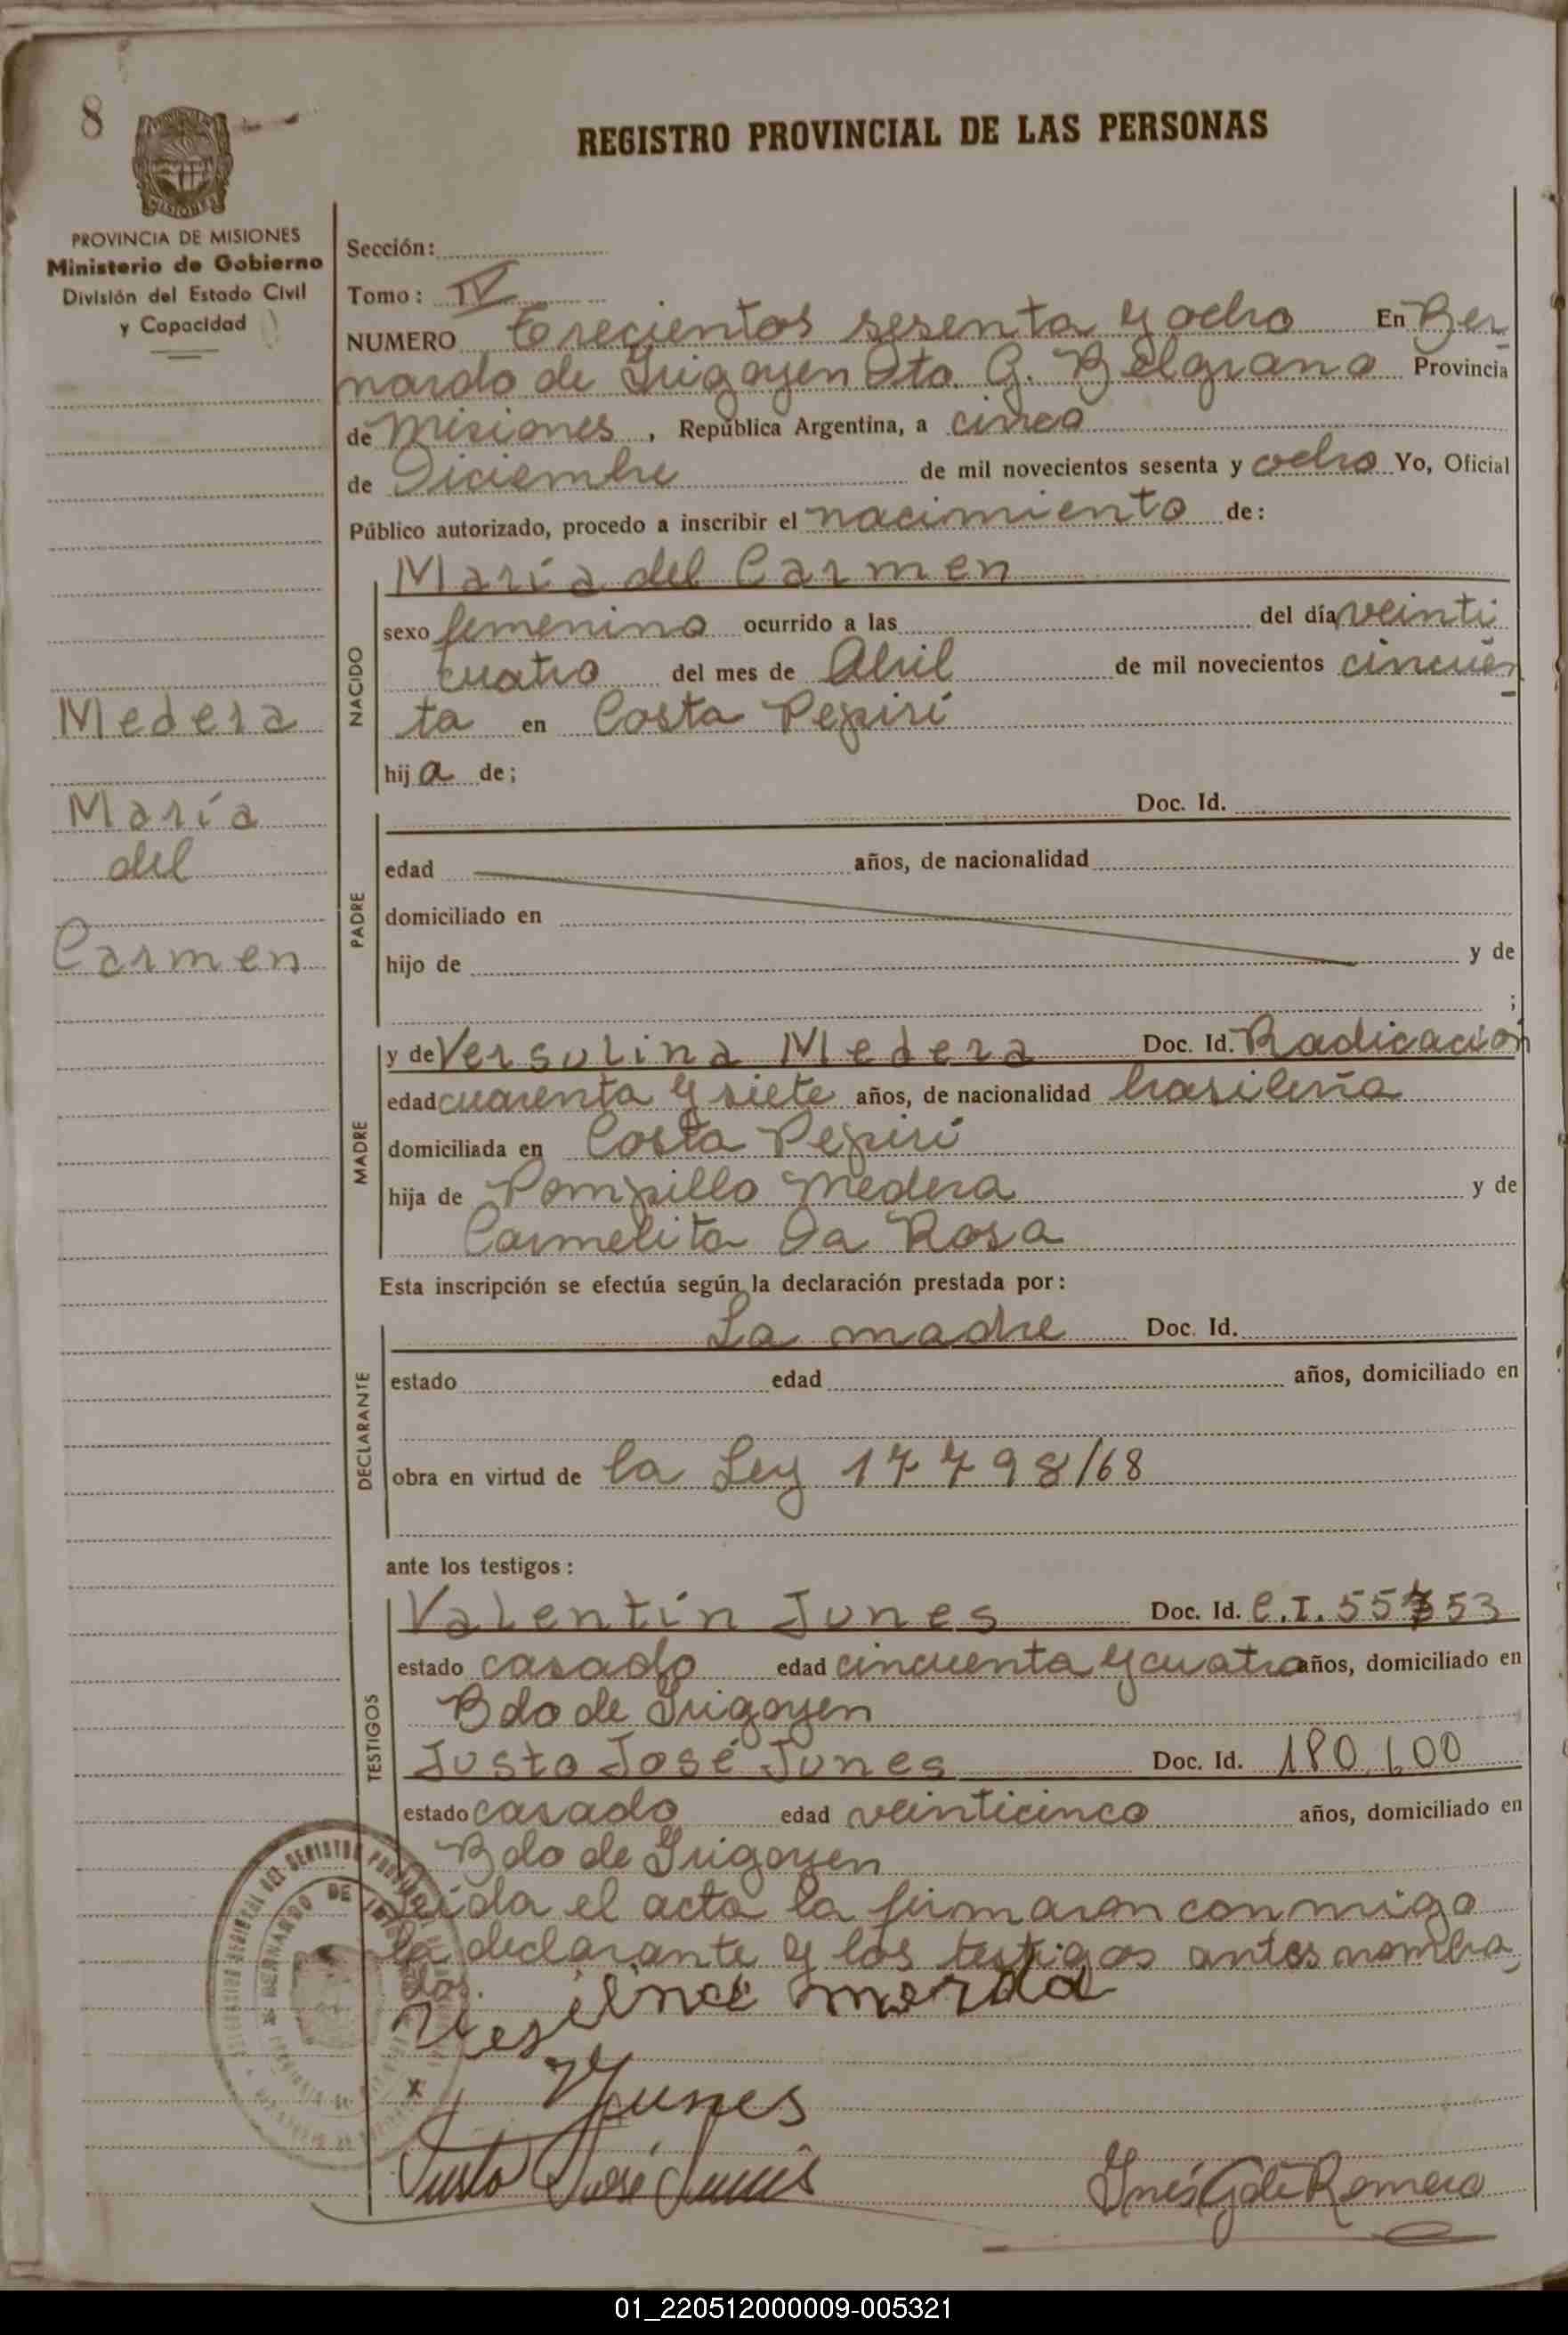 8
REGISTRO PROVINCIAL DE LAS PERSONAS
MISIONES
PROVINCIA DE MISIONES
Ministerio de Gobierno
División del Estado Civil
y Capacidad
Sección:
Tomo: IV
NUMERO Trecientos sesenta y ocho En Ber
nardo de Irigoyen Dto. G. Belgrano Provincia
de Misiones, República Argentina, a cinco
de Diciembre de mil novecientos sesenta y ocho Yo, Oficial
Público autorizado, procedo a inscribir el nacimiento de:
María del Carmen
NACIDO
sexo femenino ocurrido a las del día veinti
cuatro del mes de Abril de mil novecientos cincuen
ta en Costa Pepirí
hija de;
Medera
María
del
Carmen
PADRE
Doc. Id.
edad años, de nacionalidad
domiciliado en
hijo de y de
;
MADRE
y de Versulina Medera Doc. Id. Radicación
edad cuarenta y siete años, de nacionalidad brasileña
domiciliada en Costa Pepirí
hija de Pompillo Medera y de
Carmelita Da Rosa
Esta inscripción se efectúa según la declaración prestada por:
DECLARANTE
La madre Doc. Id.
estado edad años, domiciliado en
obra en virtud de la Ley 17798/68
ante los testigos:
TESTIGOS
Valentín Junes Doc. Id. C.I.
estado casado edad cincuenta y cuatro años, domiciliado en
Bdo de Irigoyen
Justo José Junes Doc. Id. 180.100
estado casado edad veinticinco años, domiciliado en
Bdo de Irigoyen
Leida el acta la firmaron conmigo
la declarante y los testigos antes nombra
dos.
Junes
Justo José Junes
Inés G de Romero
01_220512000009-005321